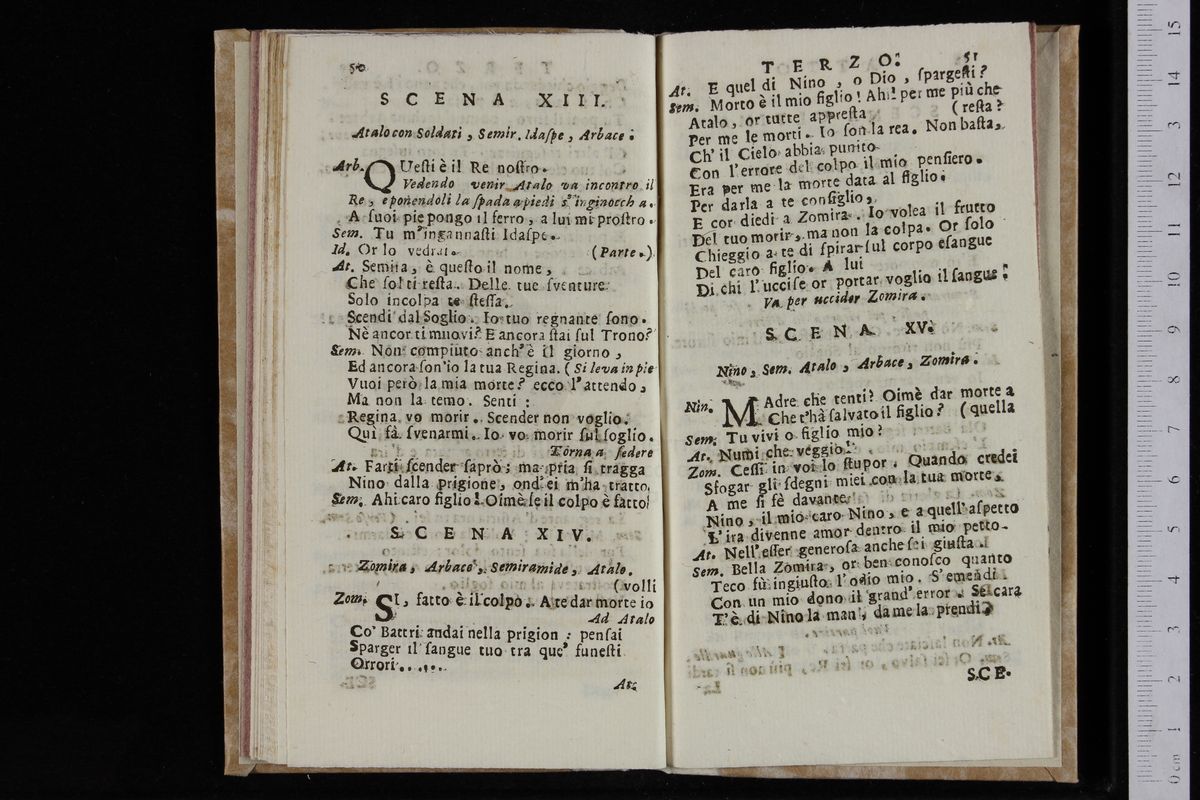 50
SCENA XIII.
Atalo con Soldati, Semir. Idaſpe, Arbace.
Arb. QUeſti è il Re noſtro.
Vedendo venir Atalo va incontro il
Re, e ponendoli la ſpada a piedi s'inginocch a.
A ſuoi pie pongo il ferro, a lui mi proſtro.
Sem. Tu m'ingannaſti Idaſpe.
Id. Or lo vedrai. (Parte.)
At. Semira, è queſto il nome,
Che ſol ti reſta. Delle tue ſventure
Solo incolpa te ſteſſa.
Scendi dal Soglio. Io tuo regnante ſono.
Nè ancor ti muovi? E ancora ſtai ſul Trono?
Sem. Non compiuto anch'è il giorno,
Ed ancora ſon'io la tua Regina. (Si leva in pie
Vuoi però la mia morte? ecco l'attendo,
Ma non la temo. Senti:
Regina vo morir. Scender non voglio.
Quì fà ſvenarmi. Io vo morir ſul ſoglio.
Torna a ſedere
At. Farti ſcender ſaprò; ma pria ſi tragga
Nino dalla prigione, ond'ei m'ha tratto.
Sem. Ahi caro figlio! Oimè ſe il colpo è fatto!
SCENA XIV.
Zomira, Arbace, Semiramide, Atalo.
(volli
Zom. SI, fatto è il colpo. A te dar morte io
Ad Atalo
Co' Battri andai nella prigion: penſai
Sparger il ſangue tuo tra que' funeſti
Orrori......
At.
TERZO. 51
At. E quel di Nino, o Dio, ſpargeſti?
Sem. Morto è il mio figlio! Ahi! per me più che
Atalo, or tutte appreſta (reſta?
Per me le morti. Io ſon la rea. Non baſta,
Ch' il Cielo abbia punito
Con l'errore del colpo il mio penſiero.
Era per me la morte data al figlio;
Per darla a te conſiglio,
E cor diedi a Zomira. Io volea il frutto
Del tuo morir, ma non la colpa. Or ſolo
Chieggio a te di ſpirar ſul corpo eſangue
Del caro figlio. A lui
Di chi l'ucciſe or portar voglio il ſangue.
Va per uccider Zomira.
SCENA XV.
Nino, Sem. Atalo, Arbace, Zomira.
Nin. MAdre che tenti? Oimè dar morte a
Che t'hà ſalvato il figlio? (quella
Sem. Tu vivi o figlio mio?
At. Numi che veggio!
Zom. Ceſſi in voi lo ſtupor. Quando credei
Sfogar gli ſdegni miei con la tua morte,
A me ſi fè davante
Nino, il mio caro Nino, e a quell'aſpetto
L'ira divenne amor dentro il mio petto.
At. Nell'eſſer generoſa anche ſei giuſta.
Sem. Bella Zomira, or ben conoſco quanto
Teco fù ingiuſto l'odio mio. S'emendi
Con un mio dono il grand'error. Se cara
T'è di Nino la man, da me la prendi.
SCE-